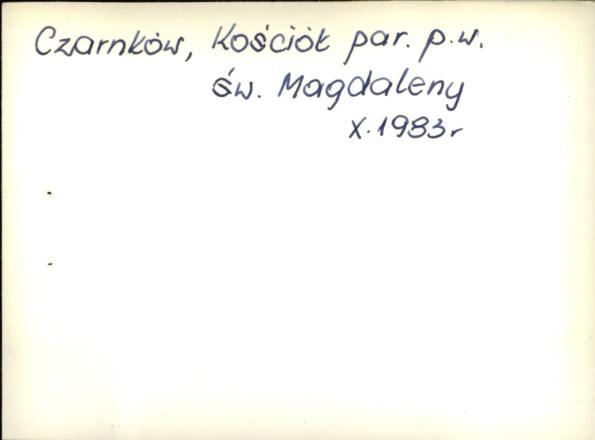 Czarnków, Kościół par. p.w.
św. Magdaleny
X.1983r